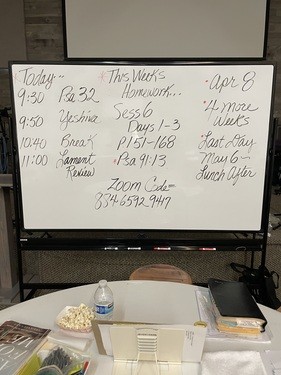 Today..
9:30 Psa 32
9:50 Yeshiva
10:40 Break
11:00 Lament
Review
This Week's
Homework...
Sess 6
Days 1-3
P 151-168
Psa 91:13
Zoom Code=
834 6592 9417
Apr 8
4 more
Weeks
Last Day
May 6~
Lunch After